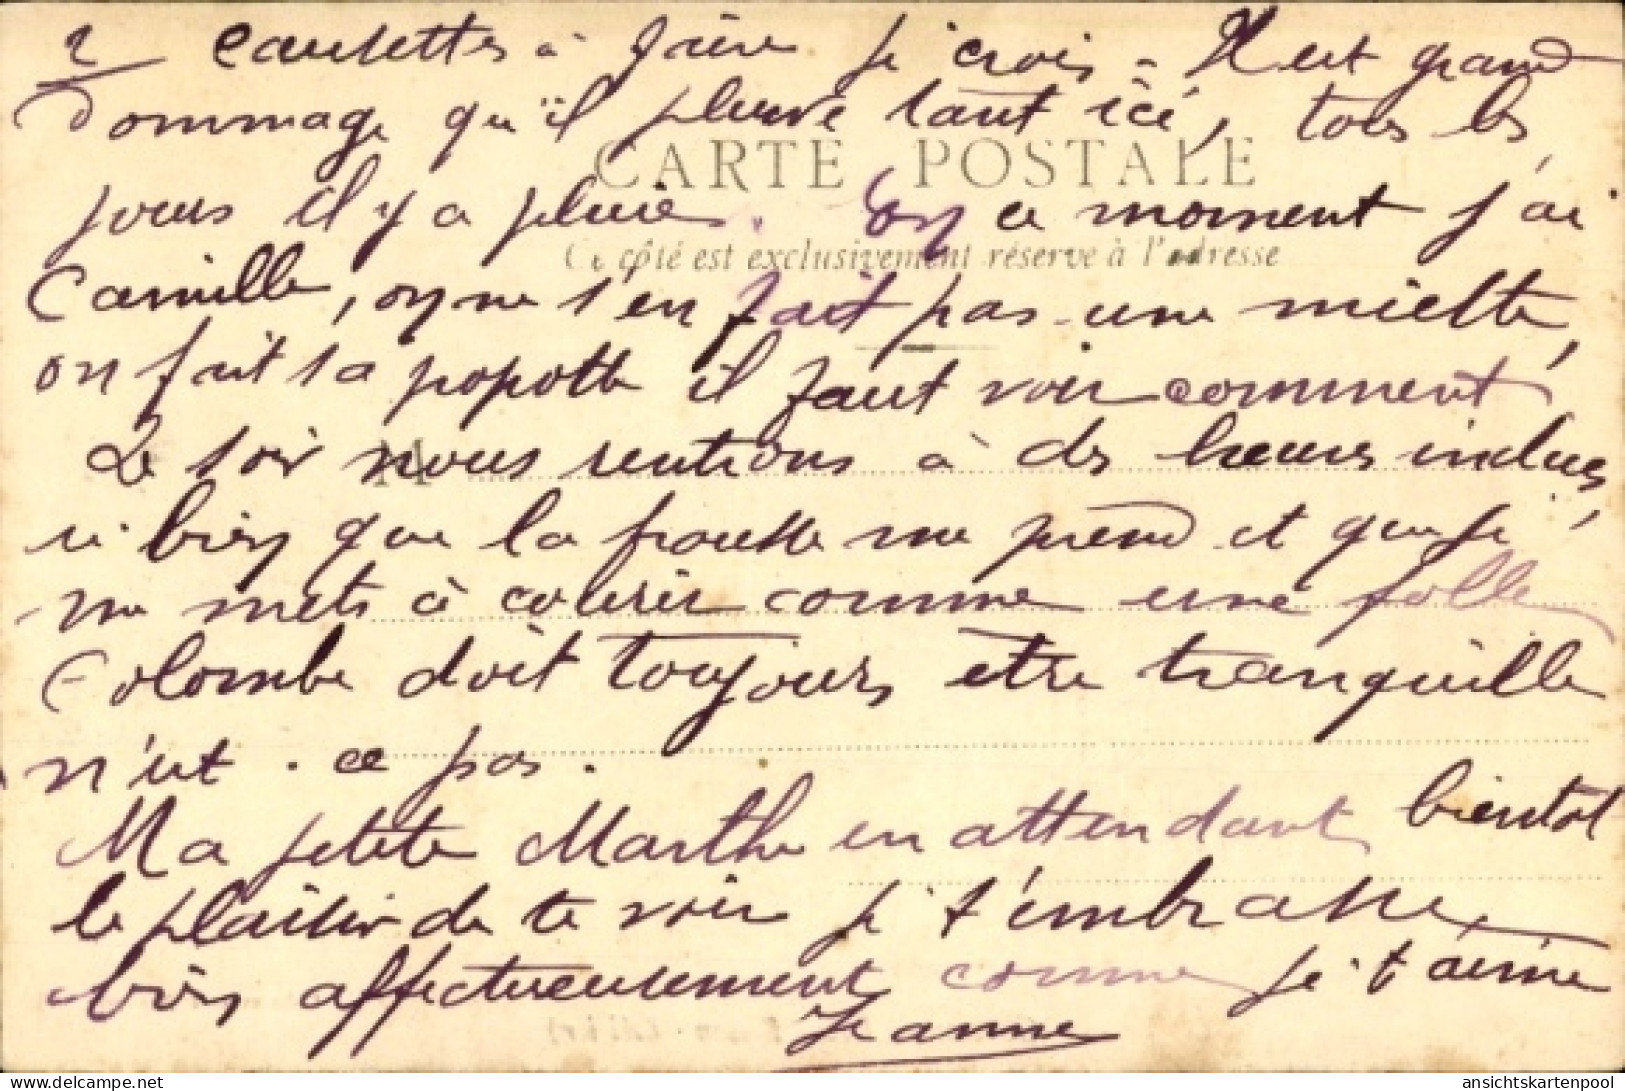 2 causettes à faire je crois - Il est grand
dommage qu'il pleuve tant ici, tous les
CARTE POSTALE
jours il y a pluie. En ce moment j'ai
Ce côté est exclusivement réservé à l'adresse
Camille, on ne s'en fait pas une miette,
on fait sa popotte il faut voir comment
Le soir nous rentrons à des heures indues,
si bien que la frousse me prend et que je
me mets à courir comme une folle
Colombe doit toujours etre tranquille
n'est-ce pas.
Ma petite Marthe en attendant bientot
le plaisir de te voir je t'embrasse
bien affectueusement comme je t'aime
Jeanne
ansichtskartenpool